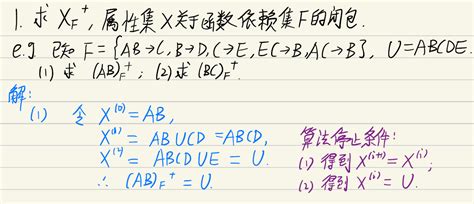 1. 求 X_F^+, 属性集X关于函数依赖集F的闭包.
e.g. 已知 F={AB→C, B→D, C→E, EC→B, AC→B}, U=ABCDE.
(1) 求 (AB)_F^+; (2) 求 (BC)_F^+.
解:
(1) 令 X^(0)=AB,
X^(1) = AB∪CD =ABCD,
X^(2) = ABCD∪E = U.
∴ (AB)_F^+ = U.
算法停止条件:
(1) 得到 X^(i+1)=X^(i);
(2) 得到 X^(i)=U.